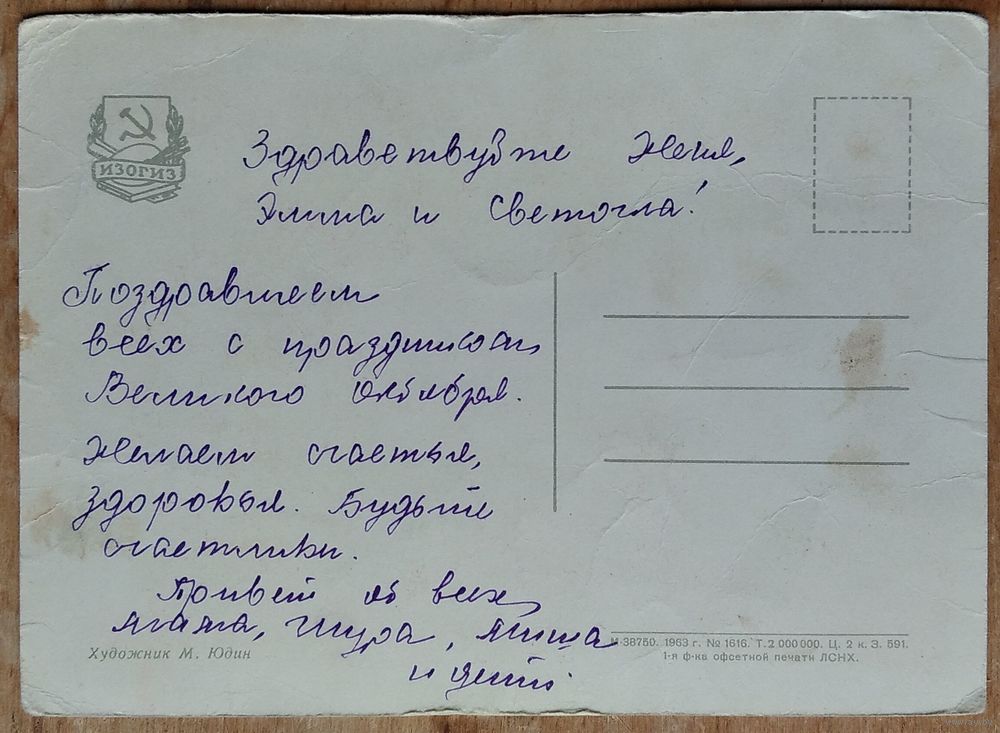 ИЗОГИЗ
Здравствуйте Женя,
Элла и Светочка!
Поздравляем
всех с праздником
Великого октября.
Желаем счастья,
здоровья. Будьте
счастливы.
Привет от всех,
мама, Шура, Миша
и дети.
Художник М. Юдин
М-38750. 1963 г. № 1616. Т. 2 000 000. Ц. 2 к. З. 591.
1-я ф-ка офсетной печати ЛСНХ.